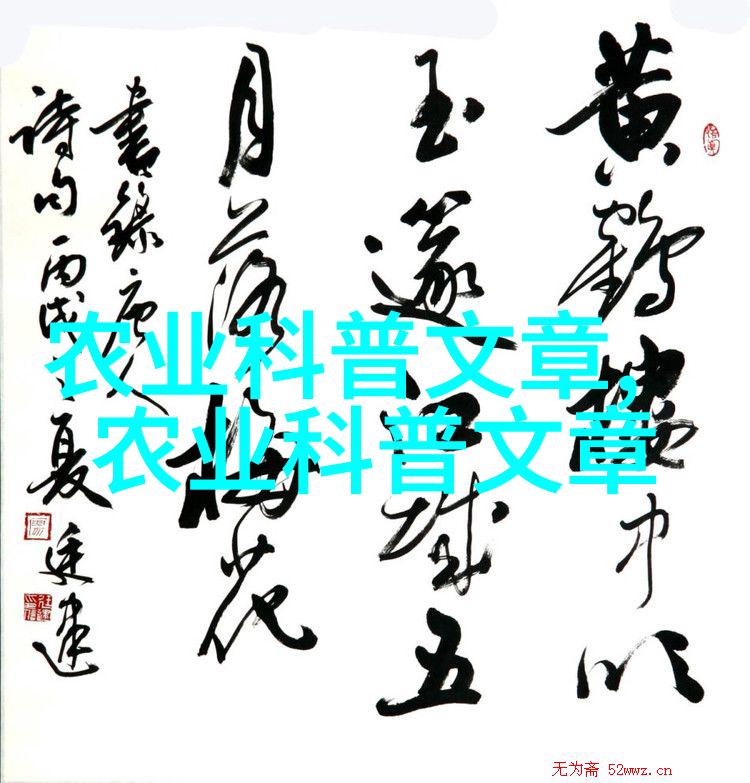 黄鶴樓中吹
玉篴江城五
月落梅花
書錄唐人
詩句丙戌之夏
农业科普文章,
农业科普文章
无为斋 52wwz.cn